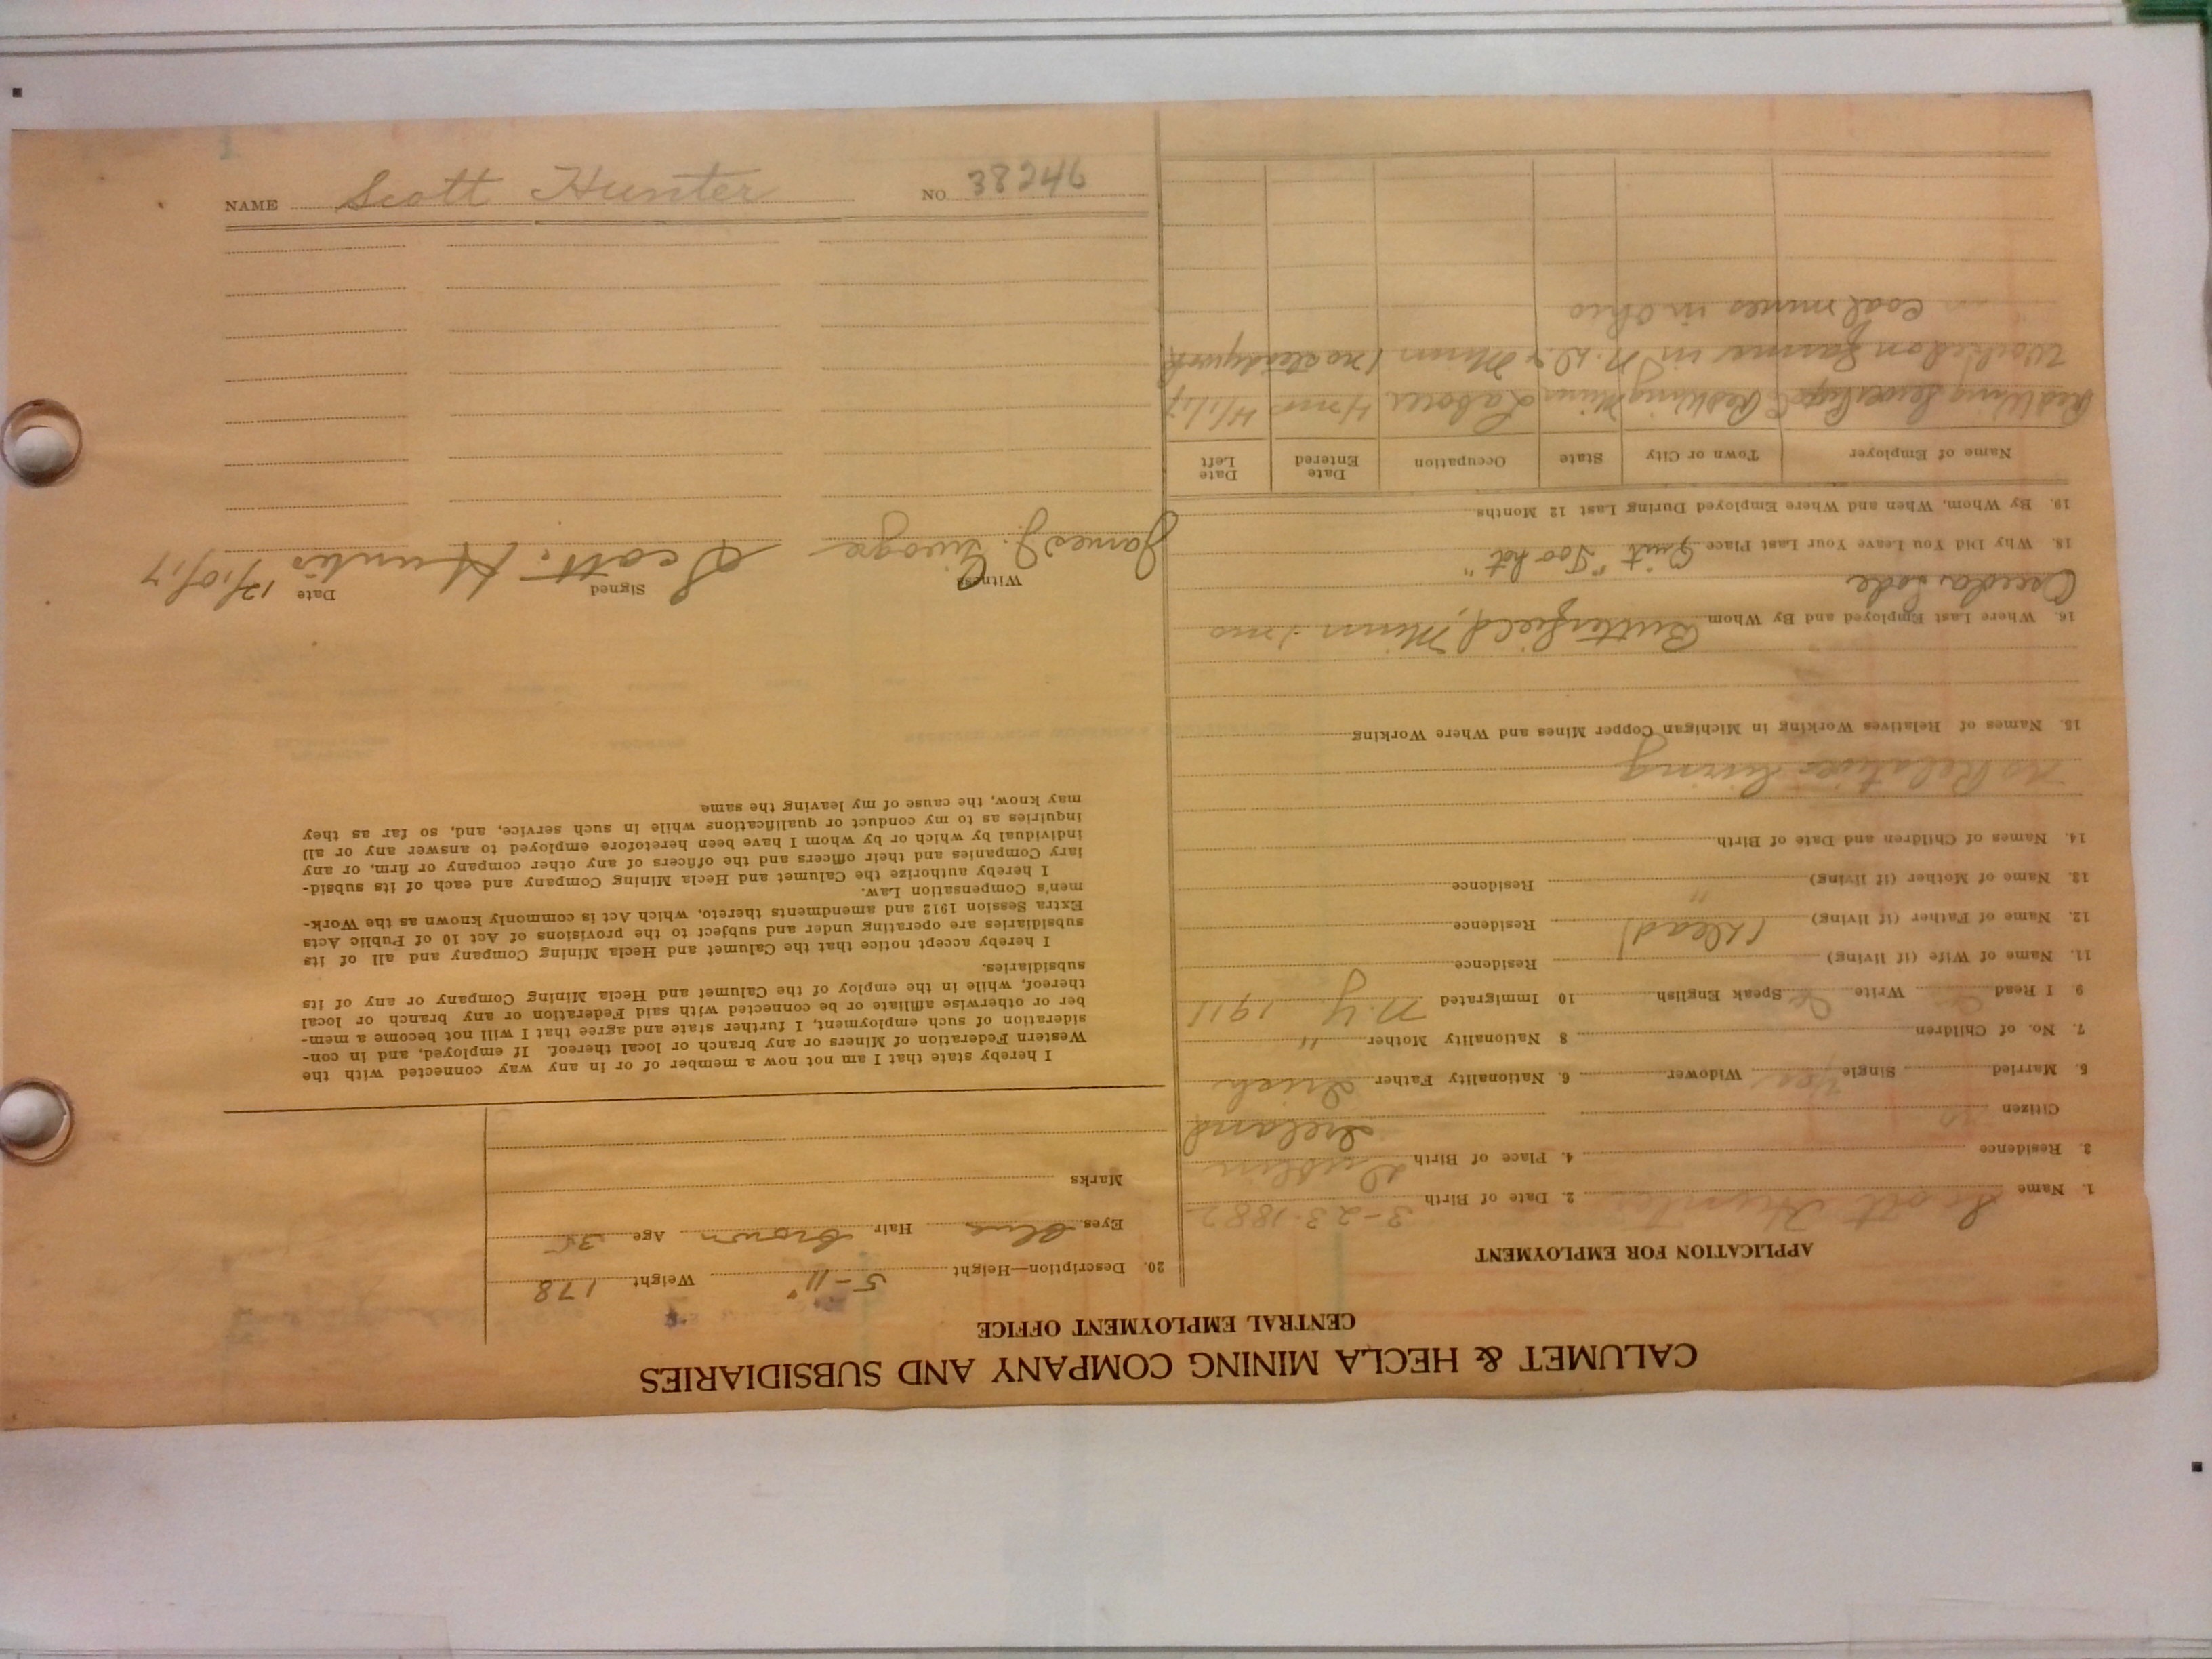 CALUMET & HECLA MINING COMPANY AND SUBSIDIARIES
CENTRAL EMPLOYMENT OFFICE
APPLICATION FOR EMPLOYMENT
1. Name Scott Hunter 2. Date of Birth 3-23-1882
3. Residence 4. Place of Birth Dublin
Ireland
Citizen no
5. Married Single Yes Widower 6. Nationality Father Irish
7. No. of Children 8 Nationality Mother "
9 I Read Write Speak English 10 Immigrated N.Y. 1911
11. Name of Wife (if living) Residence
12. Name of Father (if living) (Dead) Residence
13. Name of Mother (if living) " Residence
14. Names of Children and Date of Birth
no Relatives living
15. Names of Relatives Working in Michigan Copper Mines and Where Working
16. Where Last Employed and By Whom Butterfield, Minn 1 mo
Osceola Lode
18. Why Did You Leave Your Last Place Quit "Too hot"
19. By Whom, When and Where Employed During Last 12 Months
Name of Employer Town or City State Occupation Date Entered Date Left
Red Wing Sewer Pipe Co Red Wing Minn Laborer 4 mos 4/1/17
Worked on farms in N.D. & Minn (no steady work
coal mines in Ohio
20. Description—Height 5-11" Weight 178
Eyes Blue Hair brown Age 35
Marks
I hereby state that I am not now a member of or in any way connected with the
Western Federation of Miners or any branch or local thereof. If employed, and in con-
sideration of such employment, I further state and agree that I will not become a mem-
ber or otherwise affiliate or be connected with said Federation or any branch or local
thereof, while in the employ of the Calumet and Hecla Mining Company or any of its
subsidiaries.
I hereby accept notice that the Calumet and Hecla Mining Company and all of its
subsidiaries are operating under and subject to the provisions of Act 10 of Public Acts
Extra Session 1912 and amendments thereto, which Act is commonly known as the Work-
men's Compensation Law.
I hereby authorize the Calumet and Hecla Mining Company and each of its subsid-
iary Companies and their officers and the officers of any other company or firm, or any
individual by which or by whom I have been heretofore employed to answer any or all
inquiries as to my conduct or qualifications while in such service, and, so far as they
may know, the cause of my leaving the same
Witness Signed Date
James J. Scott Hunter 12/10/17
NAME Scott Hunter NO 38246